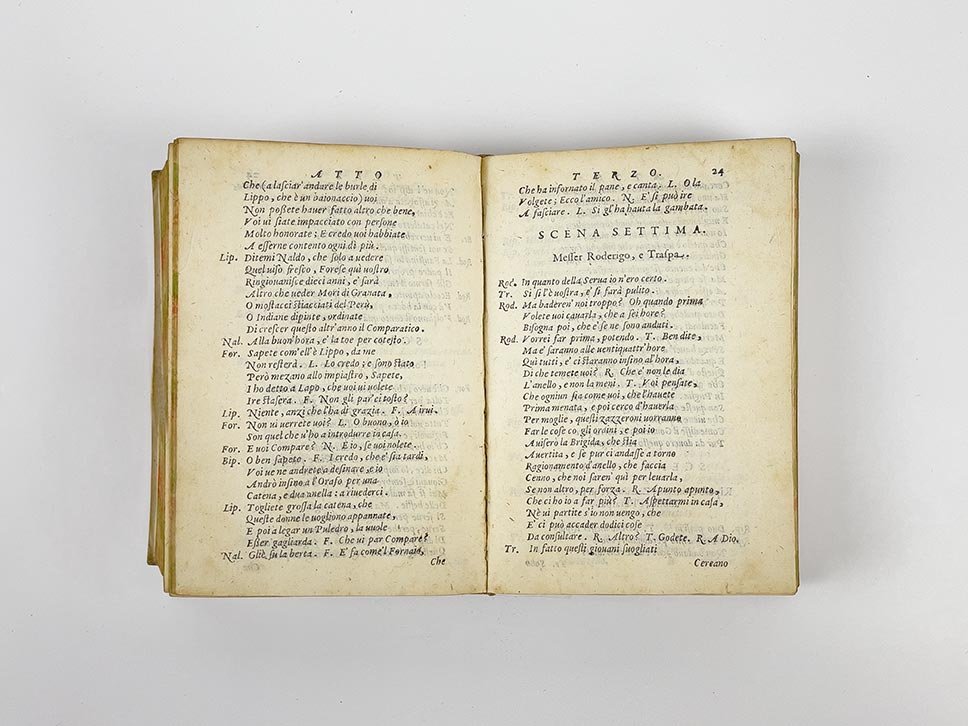 ATTO
Che (a lasciar' andare le burle di
Lippo, che è un baionaccio) uoi
Non possete hauer fatto altro che bene,
Voi ui siate impacciato con persone
Molto honorate; E credo uoi habbiate
A esserne contento ogni dì più.
Lip. Ditemi Naldo, che solo a uedere
Quel uiso fresco, Forese quì uostro
Ringiouanisce dieci anni, e' sarà
Altro che ueder Mori di Granata,
O mostacci stiacciati del Perù,
O Indiane dipinte, ordinate
Di crescer questo altr'anno il Comparatico.
Nal. Alla buon' hora, e' la toe per cotesto.
For. Sapete com'ell'è Lippo, da me
Non resterà. L. Lo credo; e sono stato
Però mezano allo impiastro, Sapete,
I ho detto a Lapo, che uoi ui uolete
Ire stasera. F. Non gli par'ei tosto?
Lip. Niente, anzi l'ha di grazia. F. A irui.
For. Non ui uerrete uoi? L. O buono, o io
Son quel che u'ho a introdurre in casa.
For. E uoi Compare? N. E io, se uoi nolete.
Bip. O ben sapete. F. I credo, che e' sia tardi,
Voi ue ne andrete a desinare, e io
Andrò insino a l'Orafo per una
Catena, e dua anella: a riuederci.
Lip. Togliete grossa la catena, che
Queste donne le uogliono appannate,
E poi a legar un Puledro, la uuole
Esser gagliarda. F. Che ui par Compare?
Nal. Gliè su la berta. F. E' fa come'l Fornaio,
Che
TERZO. 24
Che ha infornato il pane, e canta. L. Ola
Volgete; Ecco l'amico. N. E' si può ire
A fasciare. L. Sì gl' ha hauta la gambata.
SCENA SETTIMA.
Messer Roderigo, e Traspa.
Rod. In quanto della Serua io n'ero certo.
Tr. Si sì l'è uostra, e' si farà pulito.
Rod. Ma baderen' noi troppo? Oh quando prima
Volete uoi cauarla, che a sei hore?
Bisogna poi, che e' se ne sono anduti.
Rod. Vorrei far prima, potendo. T. Ben dite,
Ma e' saranno alle uentiquattr' hore
Quì tutti, e' ci staranno insino al' hora,
Di che temete uoi? R. Che e' non le dia
L'anello, e non la meni. T. Voi pensate,
Che ogniun sia come uoi, che l'hauete
Prima menata, e poi cerco d'hauerla
Per moglie, questi zazzeroni uorranno
Far le cose co gli ordini, e poi io
Auiserò la Brigida, che stia
Auertita, e se pur ci andasse a torno
Ragionamento d'anello, che faccia
Cenno, che noi saren' quì per leuarla,
Se non altro, per forza. R. Apunto apunto,
Che ci ho io a far più? T. Aspettarmi in casa,
Nè ui partite s'io non uengo, che
E' ci può accader dodici cose
Da consultare. R. Altro? T. Godete. R. A Dio.
Tr. In fatto questi giouani suogliati
Cercano